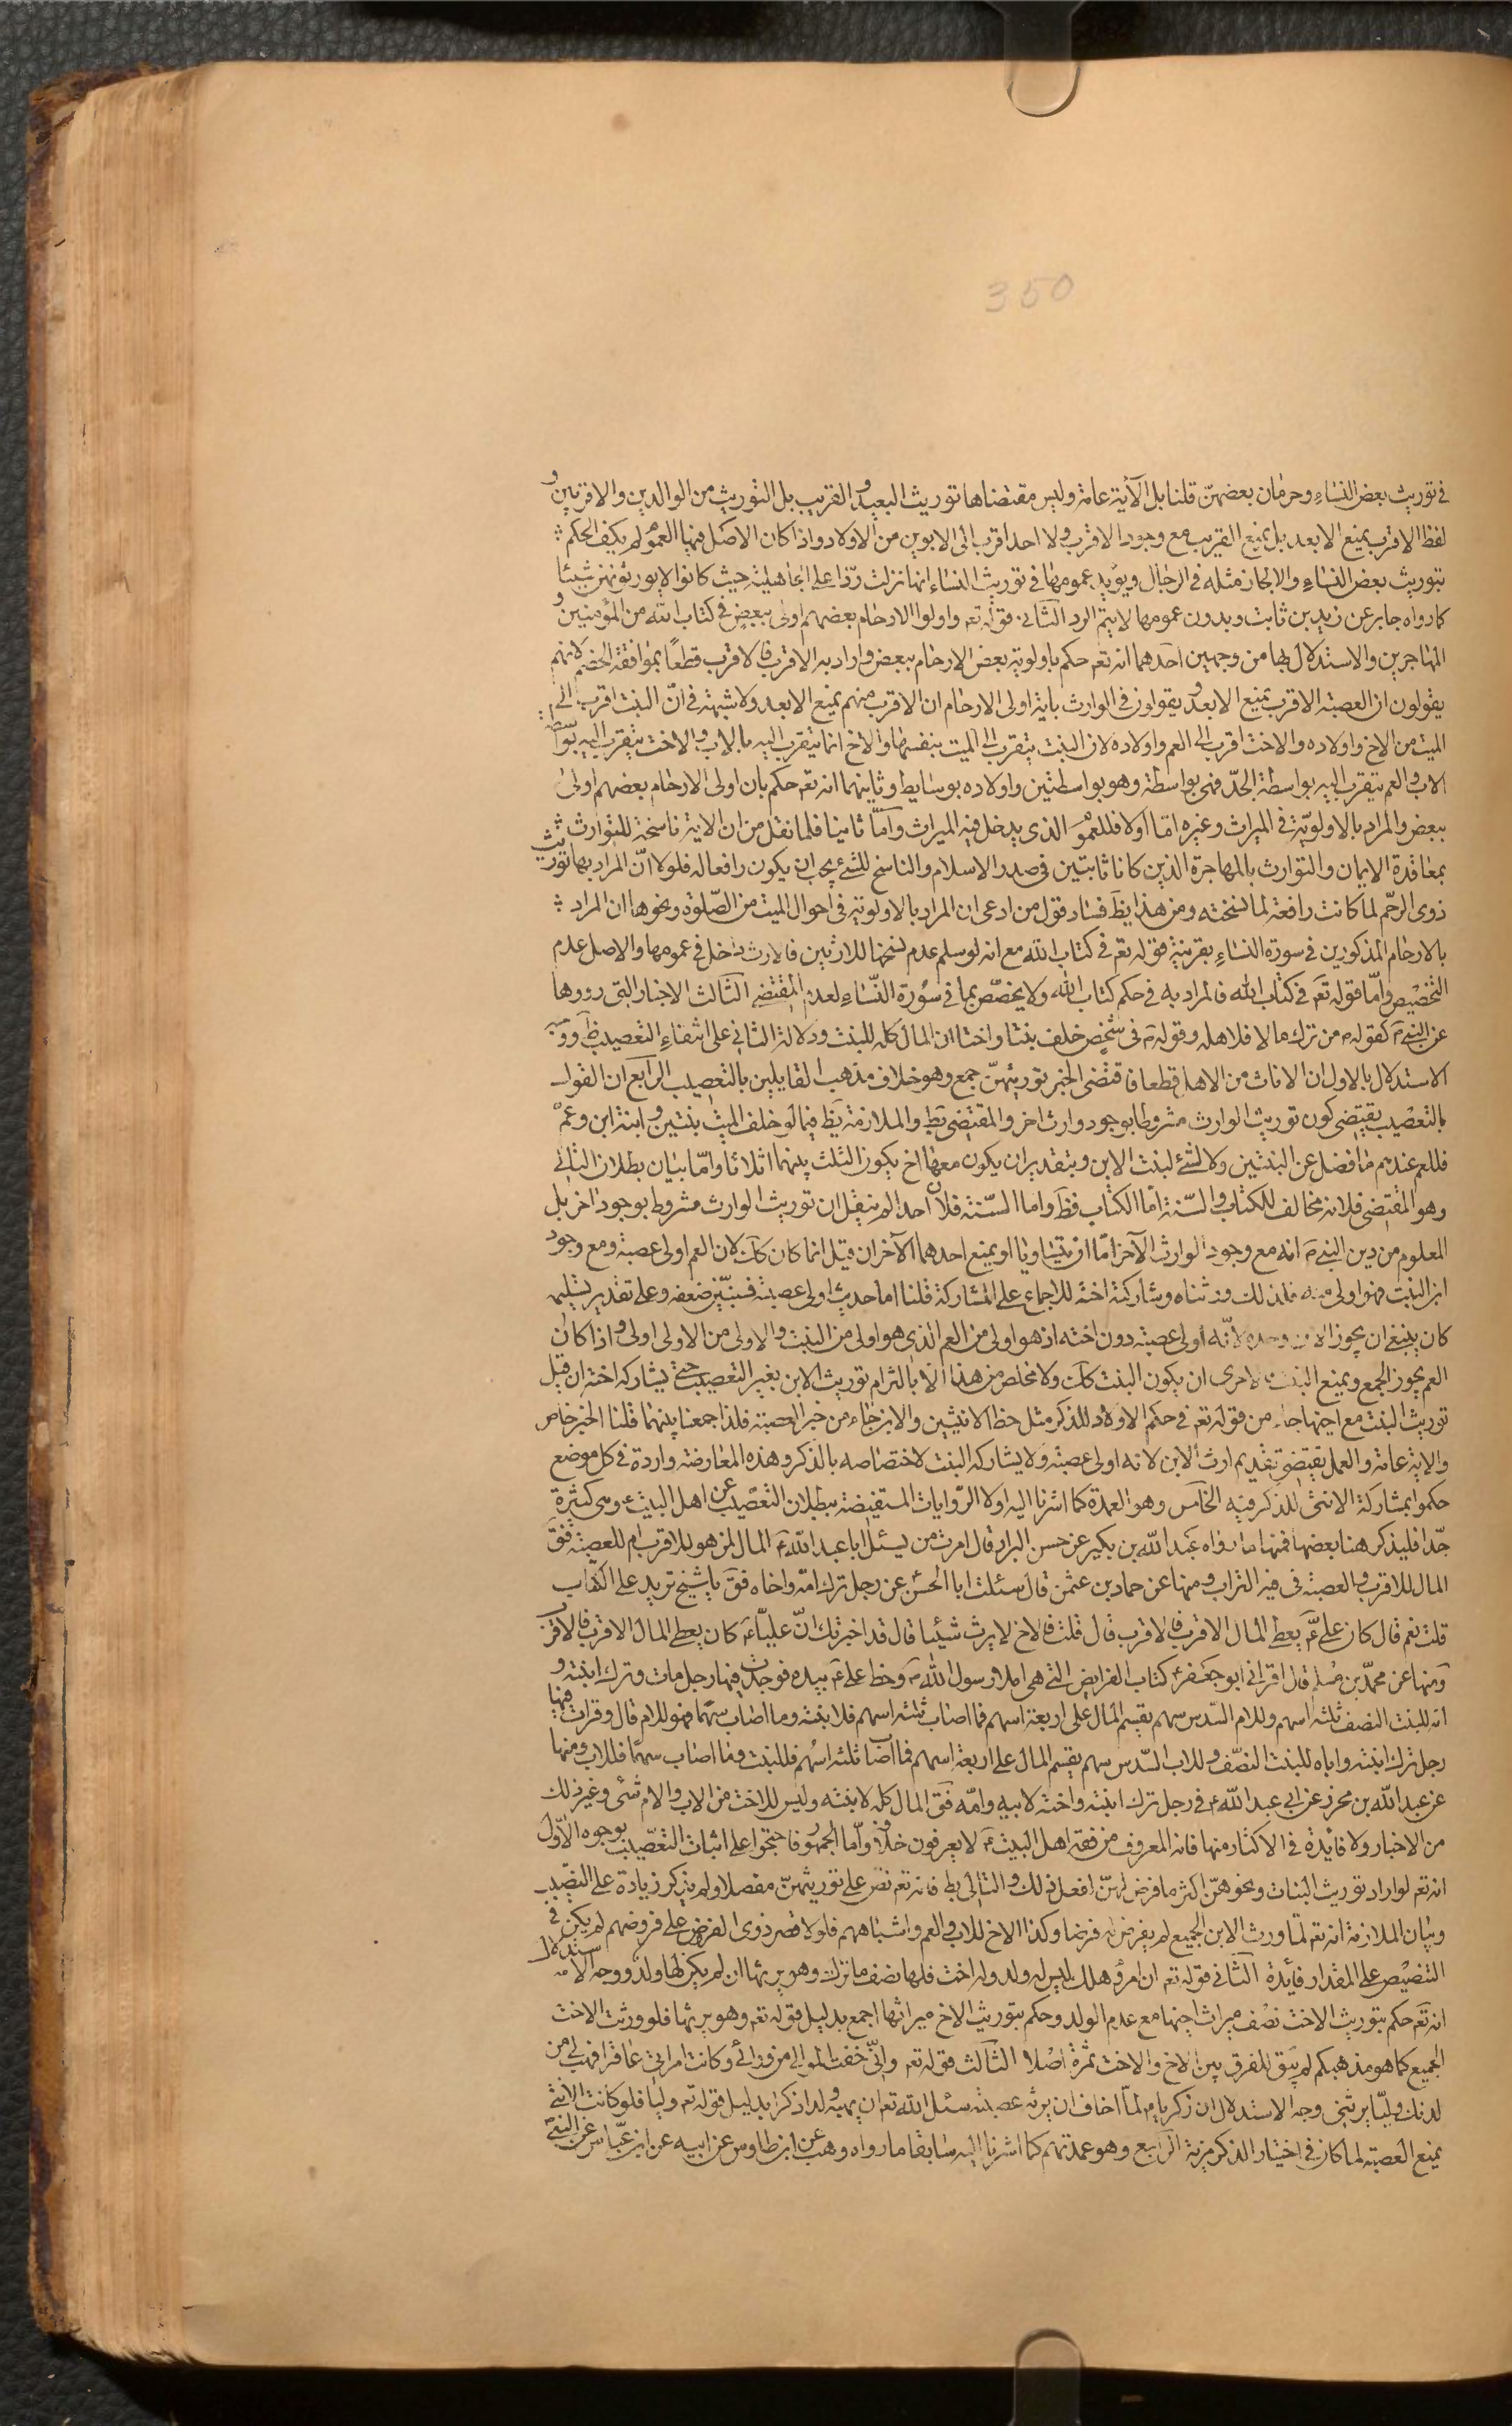 350
في توريث بعض النساء وحرمان بعضهنّ قلنا بل الآية عامة وليس مقتضاها توريث البعيد والقريب بل التوريث من الوالدين والاقربين و
لفظ الاقرب يمنع الابعد بل يمنع القريب مع وجود الاقرب ولا احد اقرب الى الابوين من الاولاد واذا كان الاصل فيها العموم لم يكف الحكم
بتوريث بعض النساء والا لجاز مثله في الرجال ويؤيد عمومها في توريث النساء انها نزلت ردّا على الجاهلية حيث كانوا لا يورثونهنّ شيئا
كما رواه جابر عن زيد بن ثابت وبدون عمومها لا يتم الرد الثاني قوله تعم واولوا الارحام بعضهم اولى ببعض في كتاب الله من المؤمنين و
المهاجرين والاستدلال بها من وجهين احدهما انه تعم حكم باولوية بعض الارحام ببعض واراد به الاقرب فالاقرب قطعاً بموافقة الخصم لانهم
يقولون ان العصبة الاقرب يمنع الابعد ويقولون في الوارث باية اولى الارحام ان الاقرب منهم يمنع الابعد ولا شبهة في انّ البنت اقرب الى
الميت من الاخ واولاده والاخت اقرب الى العم واولاده لان البنت يتقرب الى الميت بنفسها والاخ انما يتقرب اليه بالاب والاخت يتقرب اليه بواسطة
الاب والعم يتقرب اليه بواسطة الجدّ فهي بواسطة وهو بواسطتين واولاده بوسايط وثانيهما انه تعم حكم بان اولى الارحام بعضهم اولى
ببعض والمراد بالاولويّة في الميراث وغيره اما اولا فللعموم الذي يدخل فيه الميراث وامّا ثانيا فلما نقل من ان الاية ناسخة للتوارث
بمعاقدة الايمان والتوارث بالمهاجرة الذين كانا ثابتين في صدر الاسلام والناسخ للشئ يجب ان يكون رافعا له فلولا انّ المراد بها توريث
ذوي الرحم لما كانت رافعة لما نسخته ومن هذا يظ فساد قول من ادعى ان المراد بالاولوية في احوال الميت من الصّلوة ونحوها او ان المراد
بالارحام المذكورين في سورة النساء بقرينة قوله تعم في كتاب الله مع انه لو سلم عدم نسخها للارثين فالارث داخل في عمومها والاصل عدم
التخصيص وامّا قوله تعم في كتاب الله فالمراد به في حكم كتاب الله ولا يخصّص بما في سورة النّساء لعدم المقتضي الثالث الاخبار التي رووها
عن النبي ص كقوله ص من ترك مالا فلاهله وقوله ص في شخص خلف بنتا واختا ان المال كله للبنت ودلالة الثاني على انتفاء التعصيب ظ ووجه
الاستدلال بالاول ان الاناث من الاهل قطعا فاقتضى الخبر توريثهنّ جمع وهو خلاف مذهب القايلين بالتعصيب الرابع ان القول
بالتعصيب يقتضي كون توريث الوارث مشروطا بوجود وارث اخر والمقتضي بط والملازمة يظ فيما لو خلف الميت بنتين وابنة ابن وعم
فللعم عندهم ما فضل عن البنتين ولا لشئ لبنت الابن وبتقدير ان يكون معها اخ يكون الثلث بينهما اثلاثا وامّا بيان بطلان الثاني
وهو المقتضي فلانه مخالف للكتاب والسّنة امّا الكتاب فظ واما السّنة فلان احدا لم ينقل ان توريث الوارث مشروط بوجود اخر بل
المعلوم من دين النبي ص انه مع وجود الوارث الآخر امّا ان يتساويا او يمنع احدهما الآخر ان قيل انما كان كك لان العم اولى عصبة ومع وجود
ابن البنت فهو اولى منه فلذلك ورثناه وشاركته اخته للاجماع على المشاركة قلنا اما حديث اولى عصبة فسنبيّن ضعفه وعلى تقدير تسليمه
كان ينبغي ان يحوز الابن وحده لانّه اولى عصبة دون اخته اذ هو اولى من العم الذي هو اولى من البنت والاولى من الاولى اولى واذا كان
العم يحوز الجمع ويمنع البنت فالاحرى ان يكون البنت كك ولا مخلص من هذا الا بالتزام توريث الابن بغير التعصيب حتى يشاركه اخته ان قيل
توريث البنت مع اخيها جاء من قوله تعم في حكم الاولاد للذكر مثل حظ الانثيين والابن جاء من خبر العصبة فلذا جمعنا بينهما قلنا الخبر خاص
والاية عامة والعمل يقتضي تقديم ارث الابن لانه اولى عصبة ولا يشاركه البنت لاختصاصه بالذكر وهذه المعارضة واردة في كل موضع
حكموا بمشاركة الانثى للذكر فيه الخامس وهو العمدة كما اشرنا اليه اولا الرّوايات المستفيضة ببطلان التعصيب عن اهل البيت ع وهي كثيرة
جدّا فليذكر هنا بعضها فمنها ما رواه عبد الله بن بكير عن حسن البزاز قال امرت من يسئل ابا عبد الله ع المال لمن هو للاقرب ام للعصبة فقال
المال للاقرب والعصبة في فيه التراب ومنها عن حماد بن عثمن قال سئلت ابا الحسن عن رجل ترك امّه واخاه فقال يا شيخ تريد على الكتاب
قلت نعم قال كان علي ع يعطي المال الاقرب فالاقرب قال قلت فالاخ لا يرث شيئا قال قد اخبرتك انّ عليّا ع كان يعطي المال الاقرب فالاقرب
ومنها عن محمّد بن مسلم قال اقراني ابو جعفر ع كتاب الفرايض التي هي املاء رسول الله ص وخط علي ع بيده فوجدت فيها رجل مات وترك ابنته و
امّه للبنت النصف ثلثة اسهم وللام السّدس سهم يقسم المال على اربعة اسهم فما اصاب ثلثة اسهم فلابنته وما اصاب سهما فهو للام قال وقرات فيها
رجل ترك ابنته واباه للبنت النصف وللاب السّدس سهم يقسم المال على اربعة اسهم فما اصاب ثلثة اسهم فللبنت وما اصاب سهما فللاب ومنها
عن عبد الله بن محرز عن ابي عبد الله ع في رجل ترك ابنته واخته لابيه وامّه فقال المال كله لابنته وليس للاخت من الاب والام شئ وغير ذلك
من الاخبار ولا فائدة في الاكثار منها فانه المعروف من فقه اهل البيت ع لا يعرفون خلافه وامّا الجمهور فاحتجوا على اثبات التعصيب بوجوه الاوّل
انه تعم لو اراد توريث البنات ونحوهنّ اكثر ما فرض لهنّ لفعل ذلك والتالي بط فانه تعم نصّ على توريثهنّ مفصلا ولم يذكر زيادة على النصيب
وبيان الملازمة انه تعم لمّا ورث الابن الجميع لم يفرض له فرضا وكذا الاخ للاب والعم واشباههم فلولا قصر ذوي الفروض على فروضهم لم يكن في
التنصيص على المقدار فائدة الثاني قوله تعم ان امرؤ هلك ليس له ولد وله اخت فلها نصف ما ترك وهو يرثها ان لم يكن لها ولد ووجه الاستدلال
انه تعم حكم بتوريث الاخت نصف ميراث اخيها مع عدم الولد وحكم بتوريث الاخ ميراثها اجمع بدليل قوله تعم وهو يرثها فلو ورثت الاخت
الجميع كما هو مذهبكم لم يبق للفرق بين الاخ والاخت ثمرة اصلا الثالث قوله تعم وانّي خفت الموالي من ورائي وكانت امراتي عاقرا فهب لي من
لدنك وليّا يرثني وجه الاستدلال ان زكريا لمّا خاف ان يرثه عصبته سئل الله تعم ان يهبه ولدا ذكرا بدليل قوله تعم وليا فلو كانت الانثى
يمنع العصبة لما كان في اختيار الذكر مزية الرابع وهو عمدتهم كما اشرنا اليه سابقا ما رواه وهب عن ابن طاوس عن ابيه عن ابن عبّاس عن النبي